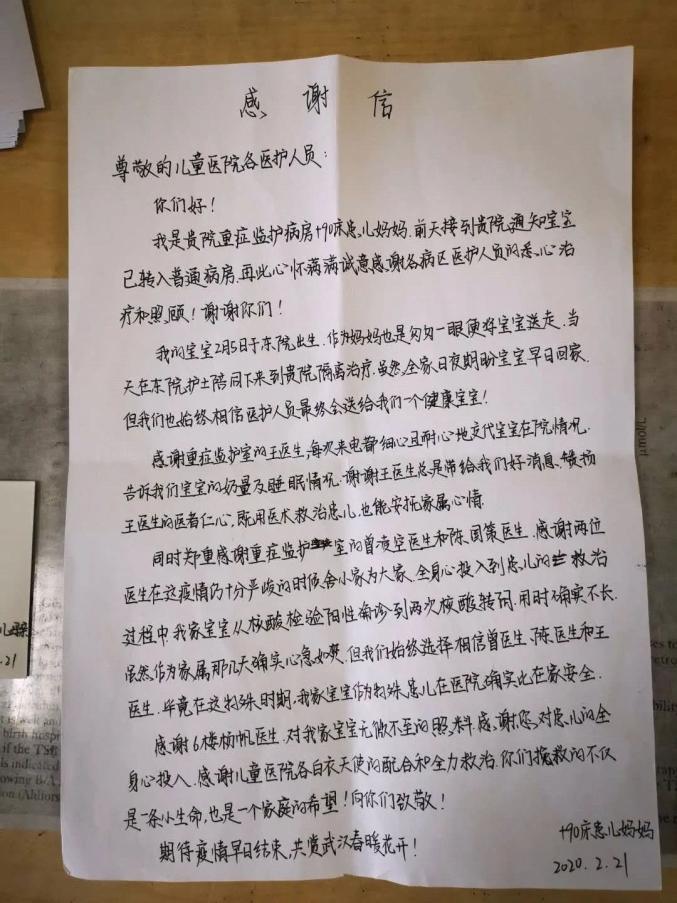 感谢信
尊敬的儿童医院各医护人员：
你们好！
我是贵院重症监护病房+90床患儿妈妈.前天接到贵院通知宝宝
已转入普通病房.再此心怀满满诚意感谢各病区医护人员的悉心治
疗和照顾！谢谢你们！
我的宝宝2月5日于东院出生.作为妈妈也是匆匆一眼便将宝宝送走.当
天在东院护士陪同下来到贵院隔离治疗.虽然,全家日夜期盼宝宝早日回家.
但我们也始终相信医护人员最终会送给我们一个健康宝宝！
感谢重症监护室的王医生,每次来电都细心且耐心地交代宝宝在院情况.
告诉我们宝宝的奶量及睡眠情况.谢谢王医生总是带给我们好消息.赞扬
王医生的医者仁心,既用医术救治患儿.也能安抚家属心情.
同时郑重感谢重症监护室的曾凌空医生和陈国策医生.感谢两位
医生在这疫情仍十分严峻的时候舍小家为大家.全身心投入到患儿的救治
过程中.我家宝宝从核酸检验阳性确诊到两次核酸转阴.用时确实不长.
虽然,作为家属那几天确实心急如焚.但我们始终选择相信曾医生、陈医生和王
医生.毕竟在这特殊时期,我家宝宝作为特殊患儿在医院确实比在家安全.
感谢6楼杨帆医生.对我家宝宝无微不至的照料.感谢您,对患儿的全
身心投入.感谢儿童医院各白衣天使的配合和全力救治.你们挽救的不仅
是一条小生命,也是一个家庭的希望！向你们致敬！
期待疫情早日结束,共赏武汉春暖花开！
+90床患儿妈妈
2020.2.21
.21
μmol/L
if the TS
is indicated
owing B/A
on (Ahlfors